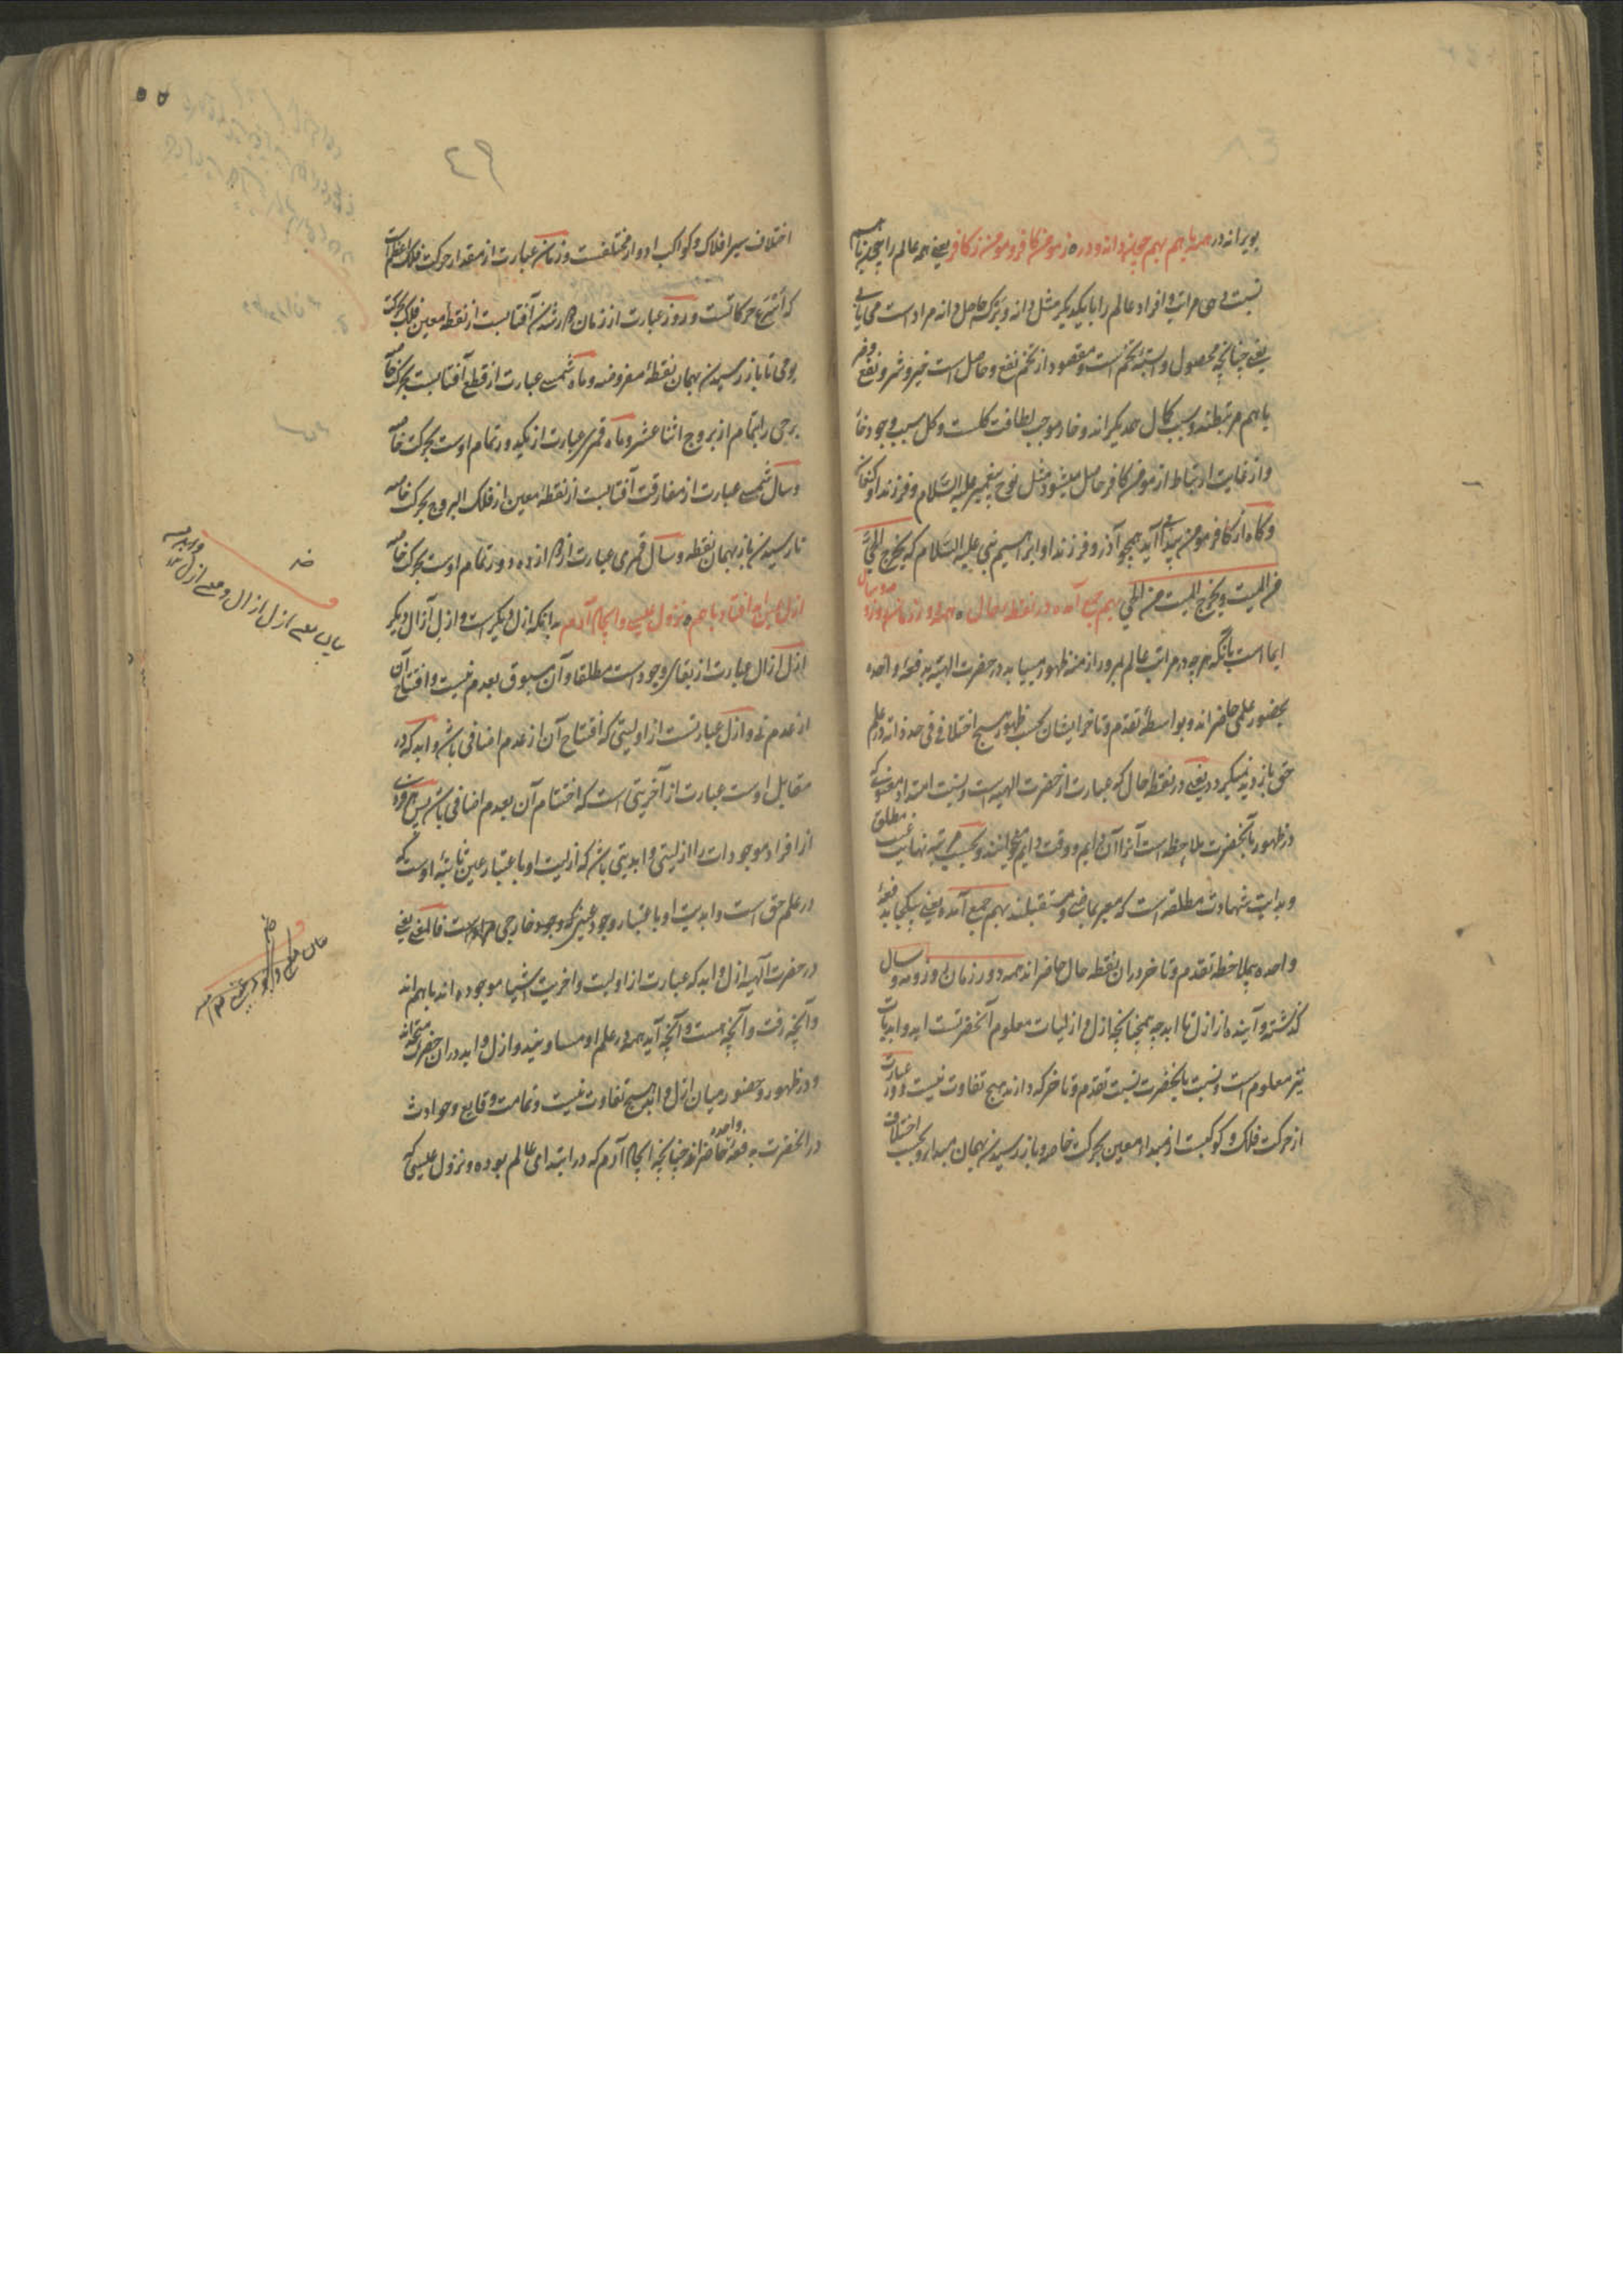 بویرانه در همه با هم بهم چون دانه و بر ز مومن کافر و مومن ز کافر یعنی همه عالم را بجهة
نسبت مراتب و افراد عالم را با یکدیگر مثل دانه و بر که حاصل دانه مراد است می یابی
یعنی چنانچه محصول وابستهٔ تخم است و مقصود از تخم نفع و حاصل است خیر و شر و نفع و ضر
باهم مرتبطند و سبب کمال همدیگراند و خار موجب لطافت گلست و گل سبب وجود خار
و از غایت ارتباط از مومن کافر حاصل میشود مثل نوح پیغمبر علیه السلام و فرزند او کنعان
و گاه از کافر مومن پیدا می آید همچو آذر و فرزند او ابراهیم نبی علیه السلام که یخرج الحی
من المیت و یخرج المیت من الحی بهم جمع آمده در نقطه حال همه دور زمان روز و مه و سال
ایما است بآنکه هرچه در مراتب عالم بمرور ازمنه ظهور مییابد در حضرت الهیه بدفعهٔ واحده
بحضور علمی حاضراند و بواسطهٔ تقدم و تاخر ایشان بحسب ظهور هیچ اختلافی فی حد ذاته در علم
حق بازدید نمیگردد یعنی در نقطه حال که عبارت از حضرت الهیه است و نسبت امتداد معنوی که
در ظهور بآنحضرت ملاحظه است آنرا آن دایم و وقت دایم میخوانند و بحسب مرتبه نهایت غیب مطلق
و بدایت شهادت مطلقه است که معبر بماضی و مستقبلند بهم جمع آمده یعنی بیکجا بدفعهٔ
واحده بملاحظه تقدم و تاخر در آن نقطه حال حاضراند همه دور زمان و روز و مه و سال
گذشته و آینده از ازل تا ابد چه همچنانچه ازل و ازلیات معلوم آنحضرتست ابد و ابدیات
نیز معلوم است و نسبت بآنحضرت نسبت تقدم و تاخر که دارند هیچ تفاوت نیست و دور عبارت
از حرکت فلک و کوکبست از مبداء معین بحرکت خاصه و باز رسیدن بهمان مبدا و بحسب اختلاف
٤٩
٥٥
اختلاف سیر افلاک و کواکب ادوار مختلفست و زمان عبارت از مقدار حرکت فلک اعظم است
که اسرع حرکاتست و روز عبارت از زمان جدا شدن آفتابست از نقطه معین فلک بحرکت
یومی تا باز رسیدن بهمان نقطهٔ مفروضه و ماه شمسی عبارت از قطع آفتابست بحرکت خاصه
برجی را بتمام از بروج اثنا عشر و ماه قمری عبارت از یکدور تمام اوست بحرکت خاصه
و سال شمسی عبارت از مفارقت آفتابست از نقطهٔ معین از فلک البروج بحرکت خاصه
تا رسیدن باز بهمان نقطه و سال قمری عبارت از دوازده دور تمام اوست بحرکت خاصه
ازل عین ابد افتاد با هم نزول عیسی و ایجاد آدم بدانکه ازل دیگر است و ازل آزال دیگر
ازل آزال عبارت از بقای وجود است مطلقا و آن مسبوق بعدم نیست و افتتاح آن
از عدم نه و ازل عبارتست از اولیتی که افتتاح آن از عدم اضافی باشد و ابد که در
مقابل اوست عبارت از آخریتی است که اختتام آن بعدم اضافی باشد پس هر فردی
از افراد موجودات را ازلیتی و ابدیتی باشد که ازلیت او باعتبار عین ثابتهٔ اوست که
در علم حق است و ابدیت او باعتبار وجود عینی که وجود خارجی مراد است فالمعنی یعنی
در حضرت الهیه ازل و ابد که عبارت از اولیت و اخریت اشیا موجوده اند باهم اند
و آنچه رفت و آنچه هست و آنچه آید همه در علم او مساویند و ازل و ابد در آن حضرت متحداند
و در ظهور و حضور میان ازل و ابد هیچ تفاوت نیست و تمامت وقایع و حوادث
در آنحضرت بدفعهٔ واحده حاضراند چنانچه ایجاد آدم که در ابتدای عالم بوده و نزول عیسی که
بیان معنی ازل آزال و معنی ازل و ابد